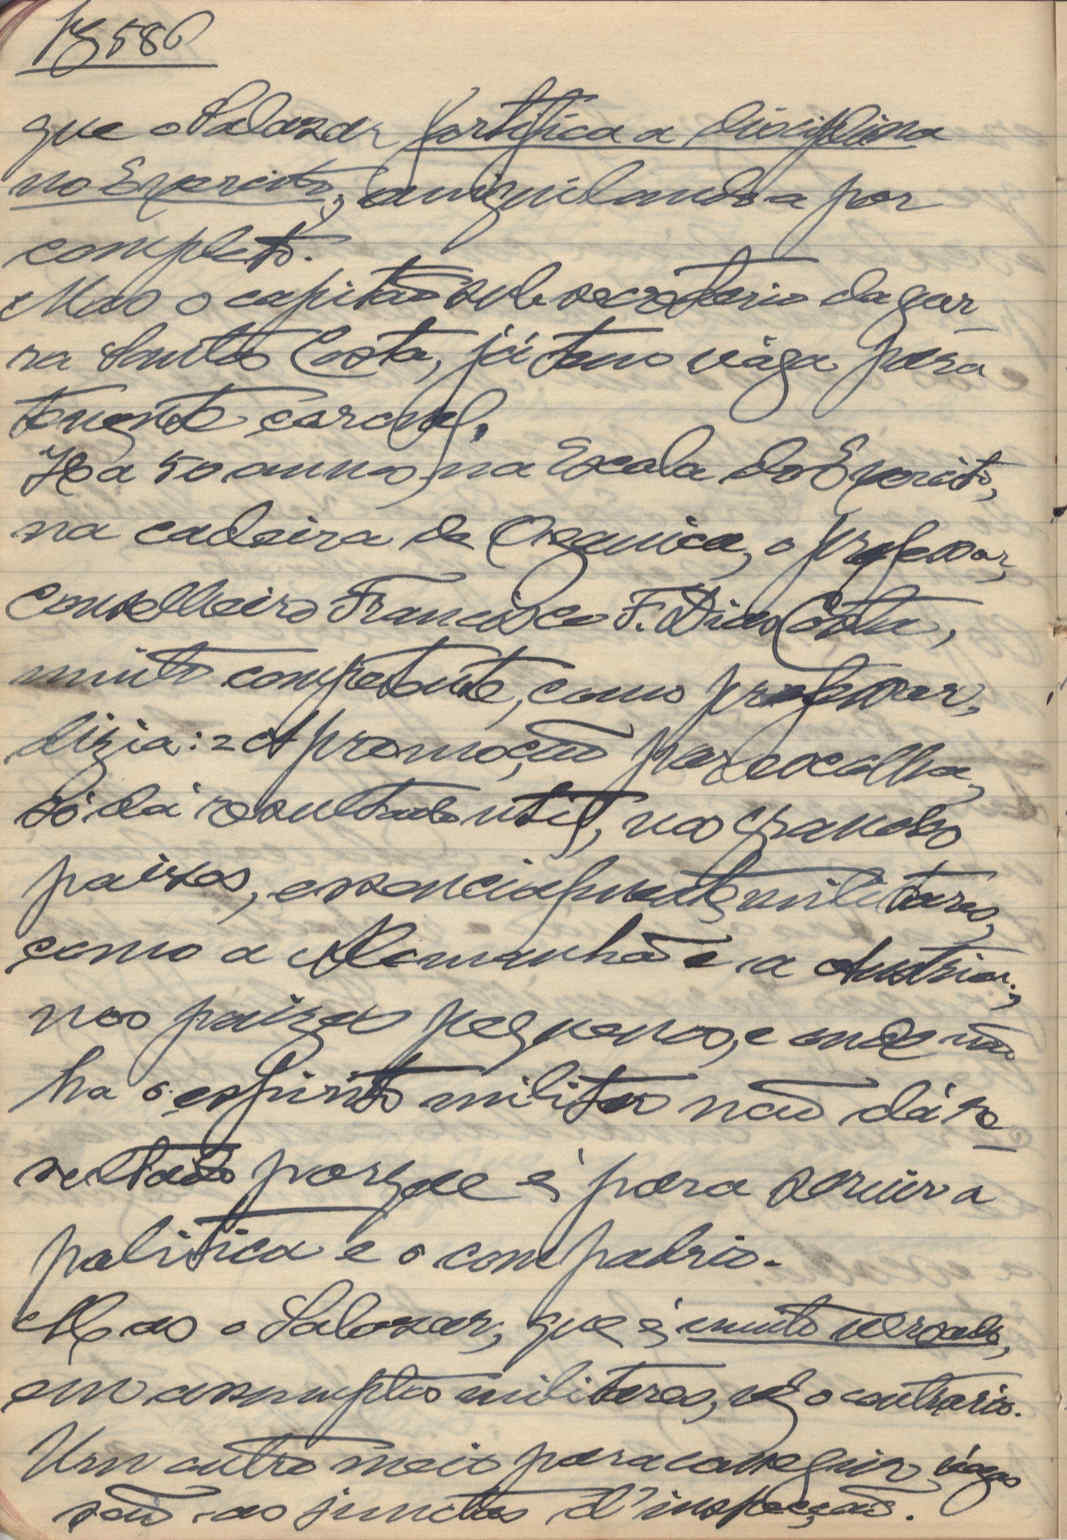 Pg 586
que o Salazar fortifica a disciplina
no Exercito, aniquilando-a por
completo.
Mas o capitão sub secretario da guer
ra Santos Costa, já tem vága para
tenente coronel.
Ha 50 annos, na Escola do Exercito,
na cadeira de Organica, o professor,
Conselheiro Francisco F. Dias Costa,
muito competente, como professor,
dizia: = A promoção por escolha,
só dá resultado util, nos grandes
paizes, essencialmente militares,
como a Alemanhã e a Austria;
nos paizes pequenos, e onde não
ha o espirito militar não dá re
sultado porque é para servir a
politica e o compadrio.
Mas o Salazar, que é muito versado,
em assumptos militares, vê o contrario.
Um outro meio para conseguir vágas
são as junctas d'inspecção.